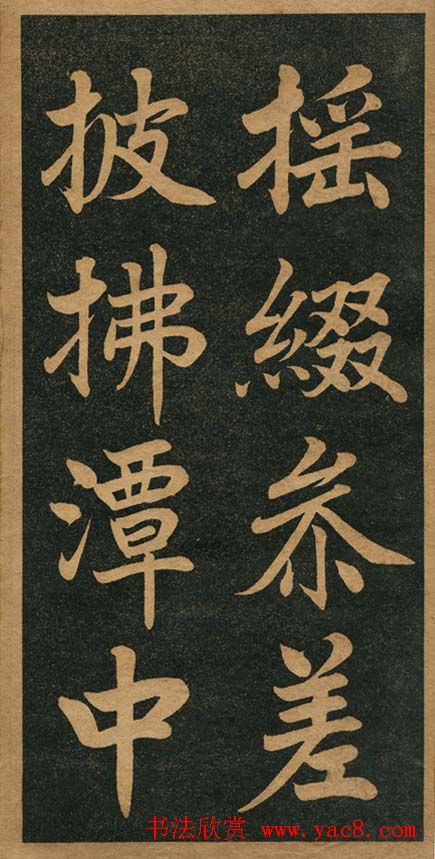 摇缀叅差
披拂潭中
书法欣赏 www.yac8.com